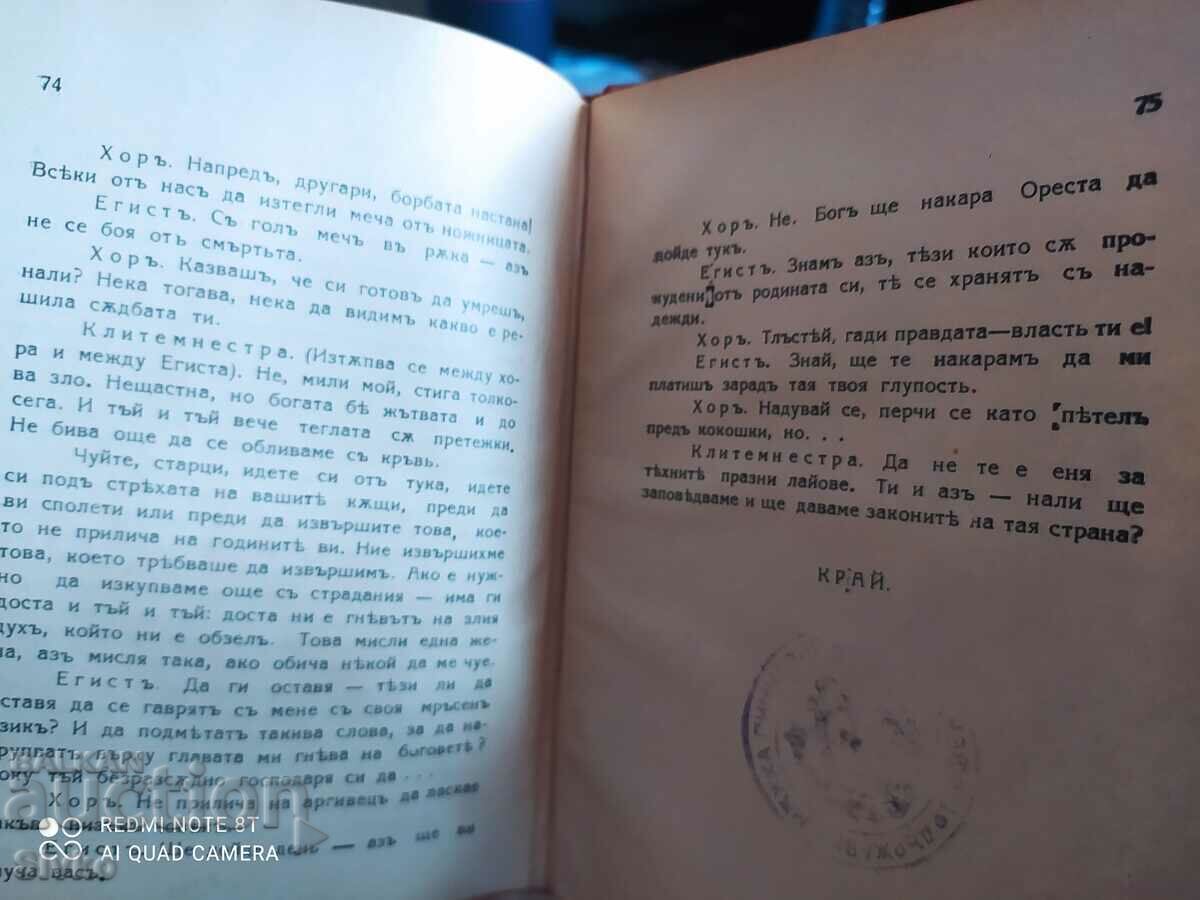 74
Хоръ. Напредъ, другари, борбата настана!
Всѣки отъ насъ да изтегли меча отъ ножницата.
Егистъ. Съ голъ мечъ въ рѫка — азъ
не се боя отъ смъртьта.
Хоръ. Казвашъ, че си готовъ да умрешъ,
нали? Нека тогава, нека да видимъ какво е ре-
шила сѫдбата ти.
Клитемнестра. (Изтѫпва се между хо-
ра и между Египта). Не, мили мой, стига толко-
ва зло. Нещастна, но богата бѣ жътвата и до
сега. И тъй и тъй вече теглата сѫ претежки.
Не бива още да се обливаме съ кръвь.
Чуйте, старци, идете си отъ тука, идете
си подъ стрѣхата на вашитѣ кѫщи, преди да
ви сполети или преди да извършите това, кое-
то не прилича на годинитѣ ви. Ние извършихме
това, което трѣбваше да извършимъ. Ако е нуж-
но да изкупваме още съ страдания — има ги
доста и тъй и тъй: доста ни е гнѣвътъ на злия
духъ, който ни е обзелъ. Това мисли една же-
на, азъ мисля така, ако обича нѣкой да ме чуе.
Егистъ. Да ги оставя — тѣзи ли да
ставя да се гаврятъ съ мене съ своя мръсенъ
зикъ? И да подмѣтатъ такива слова, за да на-
рупватъ върху главата ми гнѣва на боговетѣ?
оку тъй безразсѫдно господаря си да . . .
Хоръ. Не прилича на аргивецъ да ласкае
Егистъ. день — азъ ще ви
уча васъ.
75
Хоръ. Не. Богъ ще накара Ореста да
дойде тукъ.
Егистъ. Знамъ азъ, тѣзи които сѫ про-
кудени отъ родината си, тѣ се хранятъ съ на-
дежди.
Хоръ. Тлъстѣй, гади правдата—власть ти е!
Егистъ. Знай, ще те накарамъ да ми
платишъ зарадъ тая твоя глупость.
Хоръ. Надувай се, перчи се като пѣтелъ
предъ кокошки, но. . .
Клитемнестра. Да не те е еня за
тѣхнитѣ празни лайове. Ти и азъ — нали ще
заповѣдваме и ще даваме законитѣ на тая страна?
КРАЙ.
BALKAN
auction
slivko
REDMI NOTE 8T
AI QUAD CAMERA